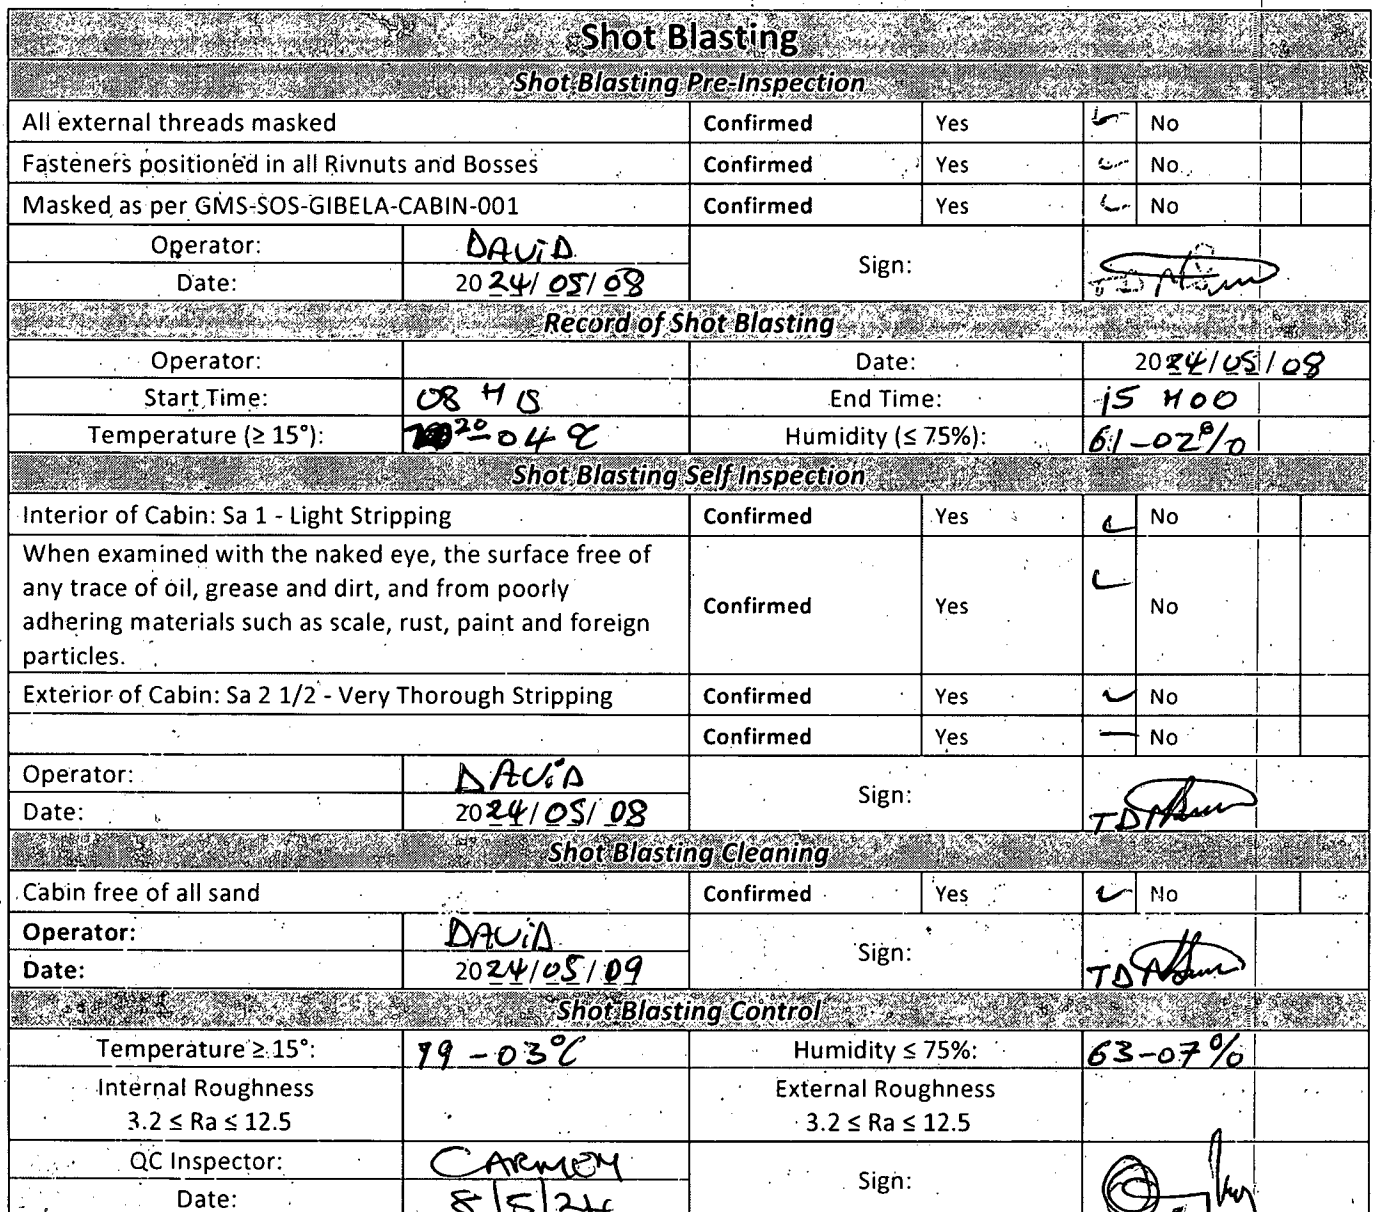 Shot Blasting
Shot Blasting Pre-Inspection
All external threads masked Confirmed Yes ✓ No
Fasteners positioned in all Rivnuts and Bosses Confirmed Yes ✓ No
Masked as per GMS-SOS-GIBELA-CABIN-001 Confirmed Yes ✓ No
Operator: DAViD Sign: TD
Date: 2024/05/08
Record of Shot Blasting
Operator: Date: 2024/05/08
Start Time: 08 H 15 End Time: 15 H00
Temperature (≥ 15°): 20-04°C Humidity (≤ 75%): 61-02%
Shot Blasting Self Inspection
Interior of Cabin: Sa 1 - Light Stripping Confirmed Yes ✓ No
When examined with the naked eye, the surface free of
any trace of oil, grease and dirt, and from poorly
adhering materials such as scale, rust, paint and foreign
particles.
Confirmed Yes ✓ No
Exterior of Cabin: Sa 2 1/2 - Very Thorough Stripping Confirmed Yes ✓ No
Confirmed Yes — No
Operator: DAViD Sign: TD
Date: 2024/05/08
Shot Blasting Cleaning
Cabin free of all sand Confirmed Yes ✓ No
Operator: DAViD Sign: TD
Date: 2024/05/09
Shot Blasting Control
Temperature ≥ 15°: 19-03°C Humidity ≤ 75%: 63-07%
Internal Roughness External Roughness
3.2 ≤ Ra ≤ 12.5 3.2 ≤ Ra ≤ 12.5
QC Inspector: CARMEN Sign:
Date: 8/5/24